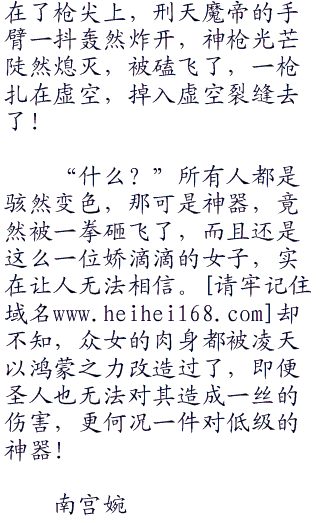 在了枪尖上，刑天魔帝的手
臂一抖轰然炸开，神枪光芒
陡然熄灭，被磕飞了，一枪
扎在虚空，掉入虚空裂缝去
了！
“什么？”所有人都是
骇然变色，那可是神器，竟
然被一拳砸飞了，而且还是
这么一位娇滴滴的女子，实
在让人无法相信。[请牢记住
域名www.heihei168.com]却
不知，众女的肉身都被凌天
以鸿蒙之力改造过了，即便
圣人也无法对其造成一丝的
伤害，更何况一件对低级的
神器！
南宫婉